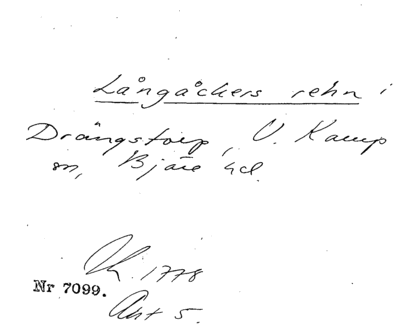 Långåckers rehn i
Drängstorp, V. Karup
sn, Bjäre hd.
Lh. 1778
Nr 7099.
Akt 5.